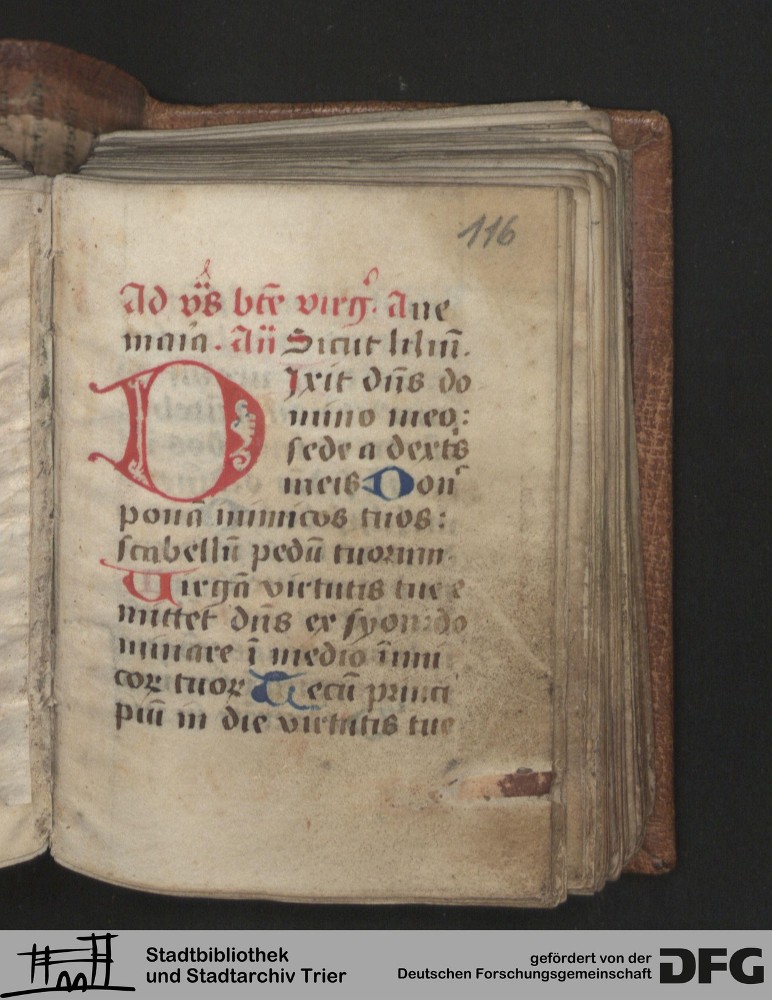 116
Ad vp̄s btē virg̊. Aue
maria. An̄ Sicut liliū.
Dixit dn̄s do
mino meo:
sede a dextꝭ
meis Don̄
ponā inimicos tuos:
scabellū pedū tuorum.
Uirgā virtutis tue e
mittet dn̄s ex syon: do
minare ī medio inimi
coꝝ tuoꝝ Tecū princi
piū in die virtutis tue
Stadtbibliothek
und Stadtarchiv Trier
gefördert von der
Deutschen Forschungsgemeinschaft
DFG